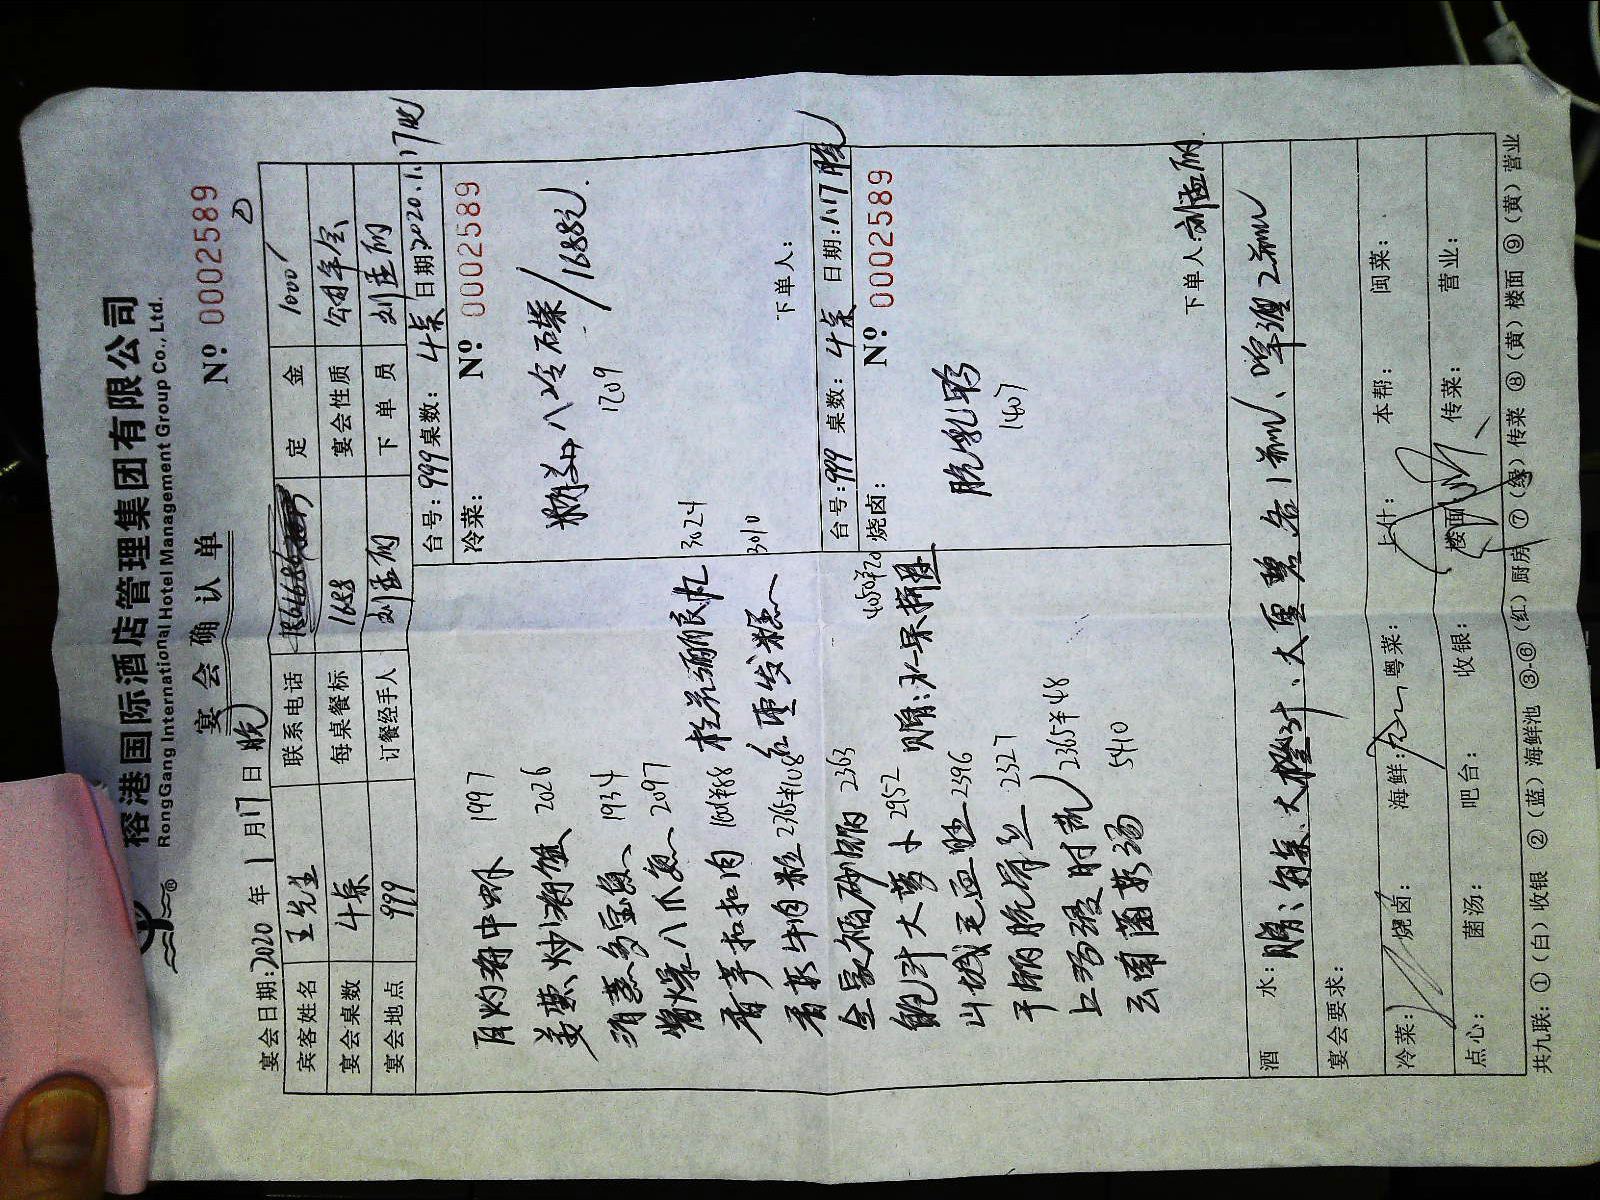 榕港国际酒店管理集团有限公司
RongGang International Hotel Management Group Co., Ltd.
®
宴会确认单
No: 0002589
②
宴会日期:2020年1月17日 晚
宾客姓名 王先生 联系电话 定金 1000
宴会桌数 4桌 每桌餐标 1688 宴会性质 公司年会
宴会地点 999 订餐经手人 刘孟丽 下单员 刘孟丽
台号:999 桌数:4桌 日期:2020.1.17晚
冷菜:
No: 0002589
八冷碟/1688元.
1209
下单人:
白灼海中虾 1997
姜葱炒海蟹 2026
清蒸多宝鱼 1934
酱爆八爪鱼 2097
香芋扣扣肉
香菜牛肉粒
全家福砂锅 2363
鲍汁大萝卜 2952
山城毛血旺 2396
干锅脆骨 2327
上汤浸时蔬 2365半48
云南菌菇汤 5410
3024
红枣发糕 3010
赠:水果拼盘
台号:999 桌数:4桌 日期:1.17晚
烧卤:
No: 0002589
脆乳鸽
1407
下单人:刘孟丽
酒水: 赠:每桌大橙汁、大雪碧各1瓶、啤酒2瓶
宴会要求:
冷菜: 烧卤: 海鲜: 粤菜: 上什: 本帮: 闽菜:
点心: 菌汤: 吧台: 收银: 楼面: 传菜: 营业:
共九联: ①(白)收银 ②(蓝)海鲜池 ③-⑥(红)厨房 ⑦(绿)传菜 ⑧(黄)楼面 ⑨(黄)营业